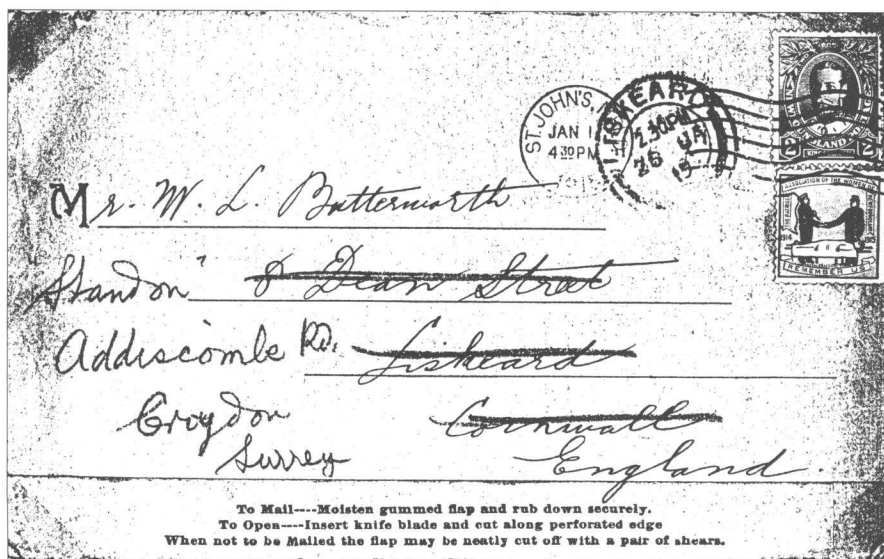 ST. JOHN'S, N
JAN 1
4 30 PM
LISKEARD
2.30 PM
26 JA
15
2 2
ASSOCIATION OF THE WOMEN OF
1914
REMEMBER US
Mr. W. L. Butterworth
"Standon" 8 Dean Street
Addiscombe Rd. Liskeard
Croydon Cornwall
Surrey England.
To Mail----Moisten gummed flap and rub down securely.
To Open----Insert knife blade and cut along perforated edge
When not to be Mailed the flap may be neatly cut off with a pair of shears.